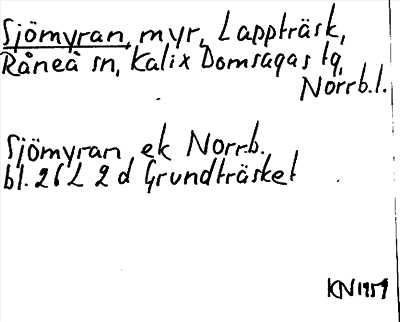 Sjömyran, myr, Lappträsk,
Råneå sn, Kalix Domsagas tg,
Norrb. l.
Sjömyran ek Norrb.
bl. 26 L 2 d Grundträsket
KN 1959